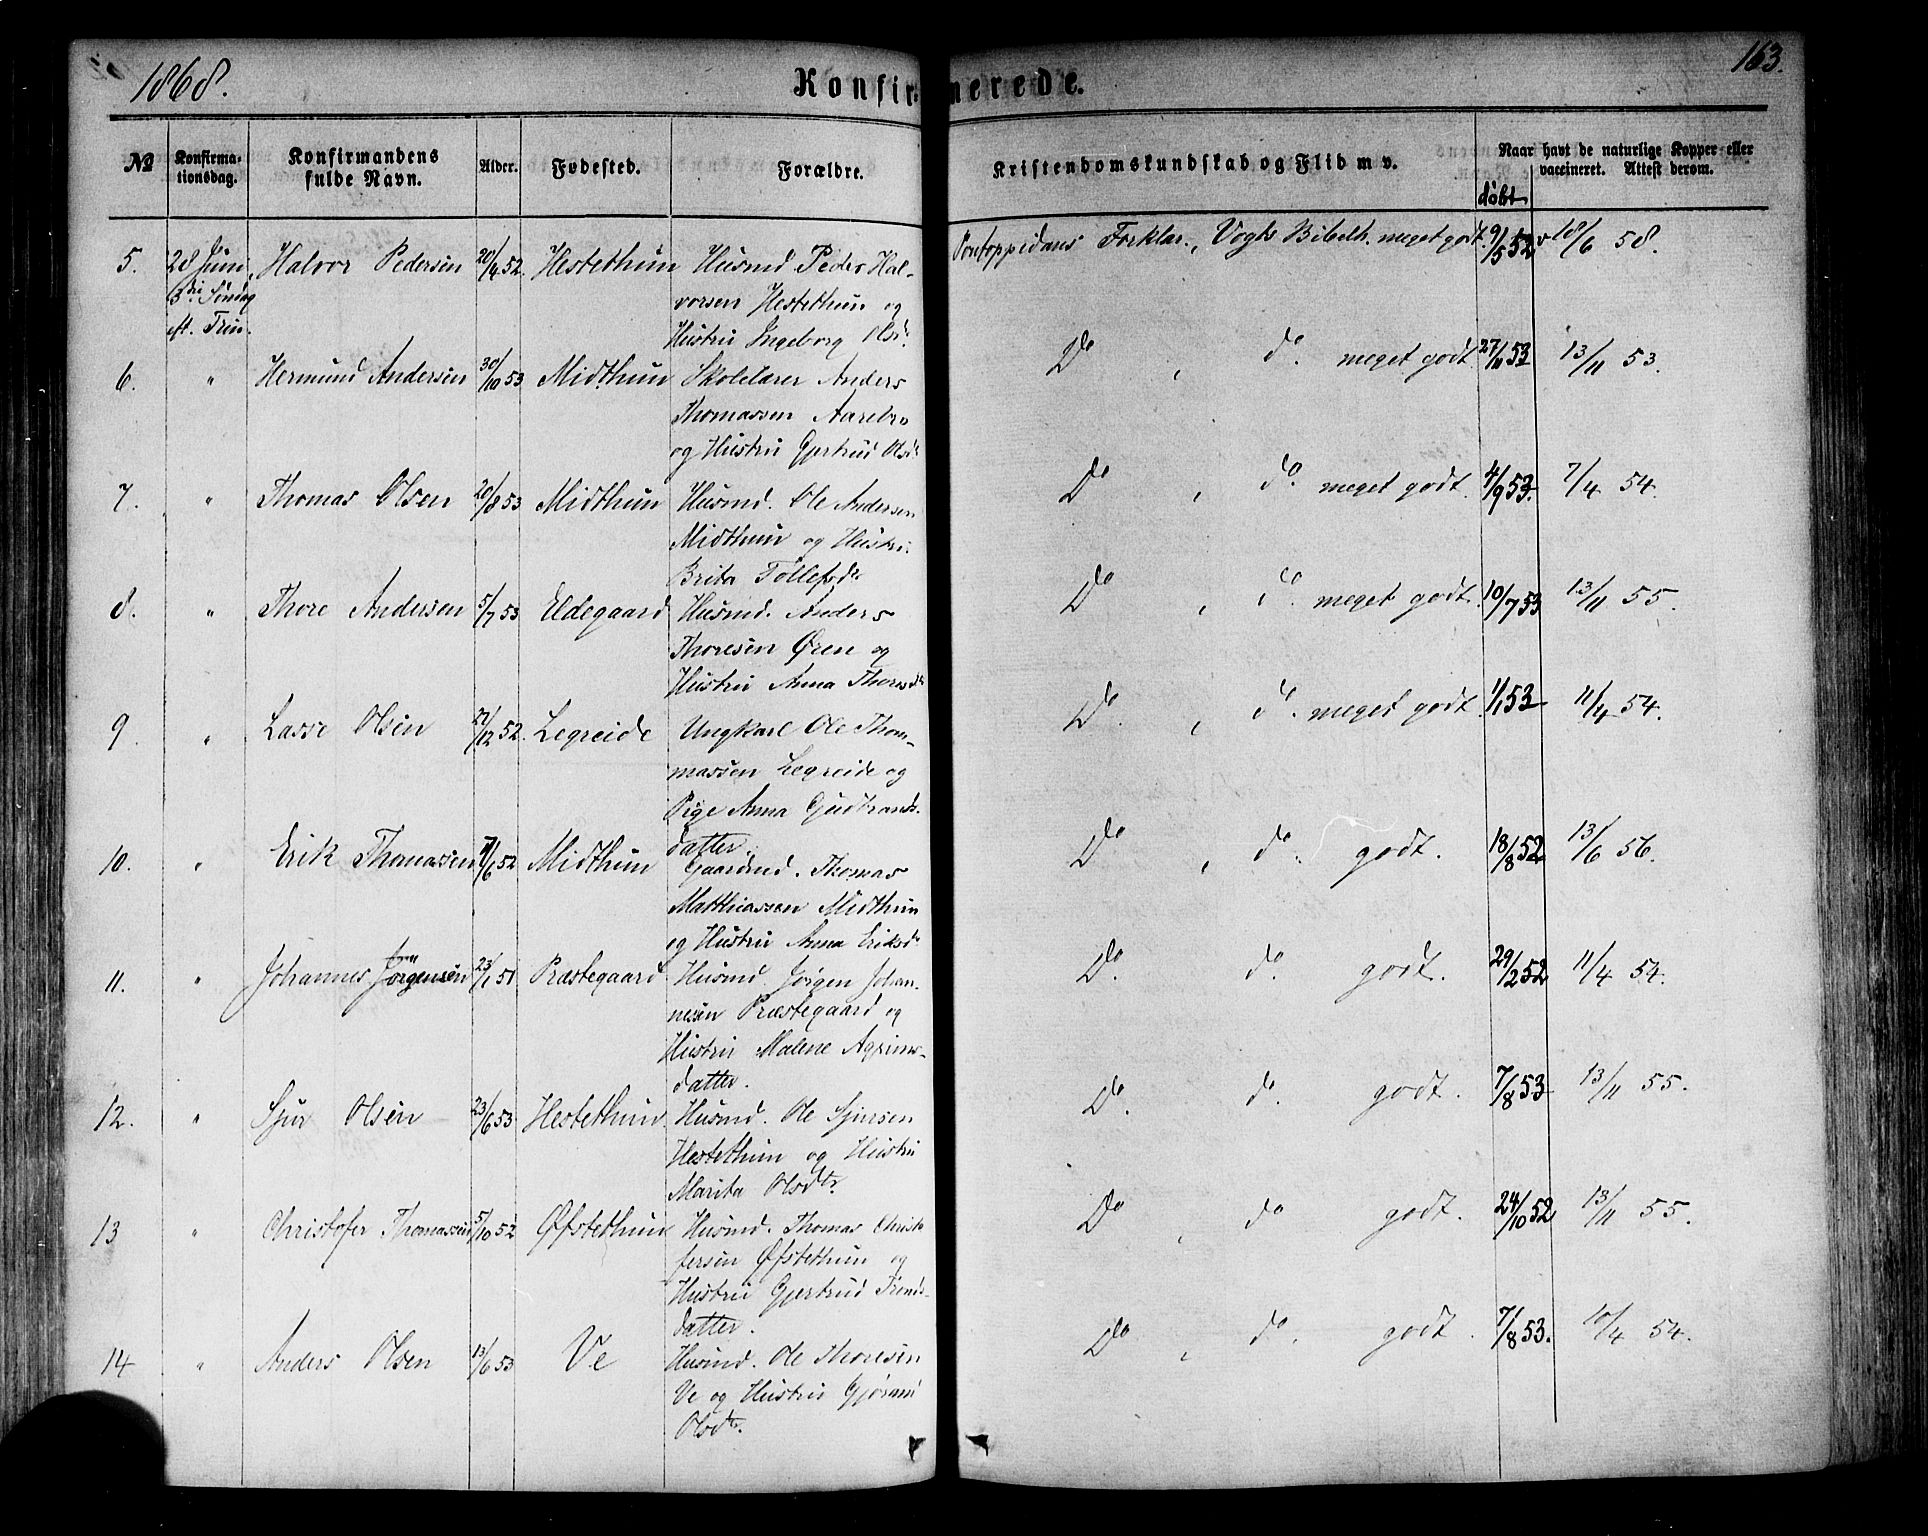 1868.
Konfirmerede.
163.
№
Konfirma-
tionsdag.
Konfirmandens
fulde Navn.
Alder.
Fødested.
Forældre.
Kristendomskundskab og Flid m v.
døbt
Naar havt de naturlige Kopper eller
vaccineret. Attest derom.
5. 28 Juni Halvor Pedersen 20/4 52. Hestethun Husmd Peder Hal- Pontoppidans Forklar., Vogts Bibelh. meget godt. 9/5 52 18/6 58.
3die Søndag vorsen Hestethun og
eft. Trin. Hustru Ingeborg Olsdr.
6. " Hermund Andersen 30/10 53 Midthun Skolelærer Anders Do , do. meget godt 27/11 53 13/11 53.
Thomassen Aarebro
og Hustru Gjertrud Olsdr
7. " Thomas Olsen 20/8 53 Midthun Husmd. Ole Andersen Do , do. meget godt. 4/9 53. 7/4 54.
Midthun og Hustru
Brita Tollefsdr
8. " Thore Andersen 5/7 53 Eldegaard Husmd. Anders Do , do. meget godt. 10/7 53 13/11 55.
Thoresen Øren og
Hustru Anna Thoresdr
9. " Lasse Olsen 27/12 52. Legreide Ungkarl Ole Thom- Do. , do. meget godt 1/1 53 11/4 54.
massen Legreide og
Pige Anna Gudbrands-
datter.
10. " Erik Thomassen /6 52 Midthun Gaardmd. Thomas Do , do. godt. 18/8 52 13/6 56.
Matthiassen Midthun
og Hustru Anna Eriksdr
11. " Johannes Jørgensen 23/1 51 Præstegaard Husmd. Jørgen Johan- Do. do. godt. 29/2 52 11/4 54.
nesen Præstegaard og
Hustru Malene Agrims-
datter.
12. " Sjur Olsen 23/6 53 Hestethun Husmd. Ole Sjursen Do. do. godt. 7/8 53 13/11 55.
Hestethun og Hustru
Marita Olsdtr.
13 " Christofer Thomassen 5/10 52 Øfstethun Husmd. Thomas Christo Do , do godt. 24/10 52 13/11 55.
fersen Øfstethun og
Hustru Gjertrud Trends-
datter.
14 " Anders Olsen 13/6 53 Ve Husmd. Ole Thoresen Do , do. godt. 7/8 53. 10/4 54.
Ve og Hustru Gjørani
Olsdtr.